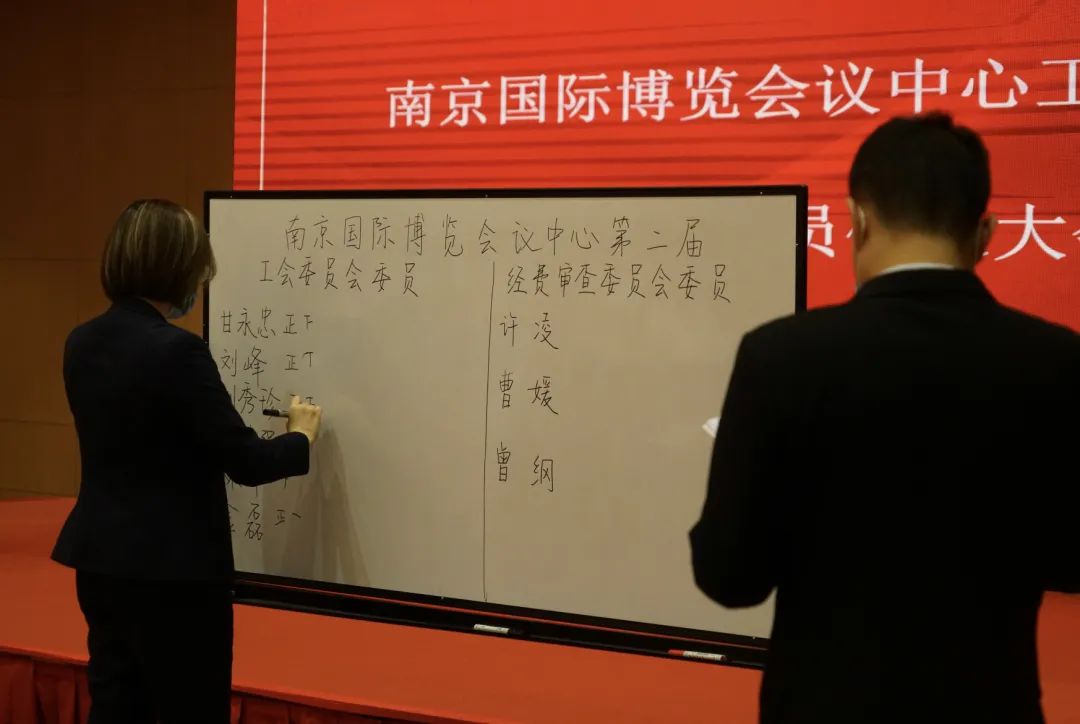 南京国际博览会议中心工
员 大
南京国际博览会议中心第二届
工会委员会委员
经费审查委员会委员
甘永忠 正下
刘峰 正丅
秀珍
磊 正一
许凌
曹媛
曾纲